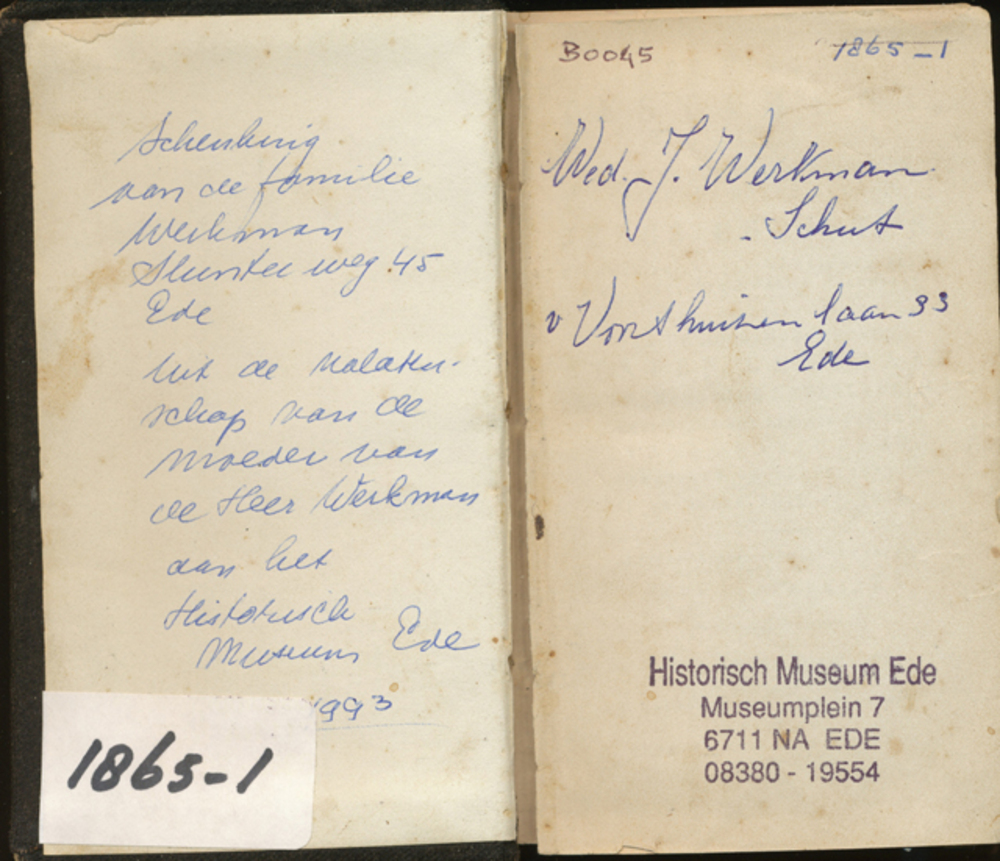 Schenking
van de familie
Werkman
Slunterweg 45
Ede
Uit de nalaten-
schap van de
moeder van
de Heer Werkman
aan het
Historisch
Museum Ede
1993
1865-1
B0045
1865-1
Wed. J. Werkman
- Schut
v Voorthuisen laan 33
Ede
Historisch Museum Ede
Museumplein 7
6711 NA EDE
08380 - 19554